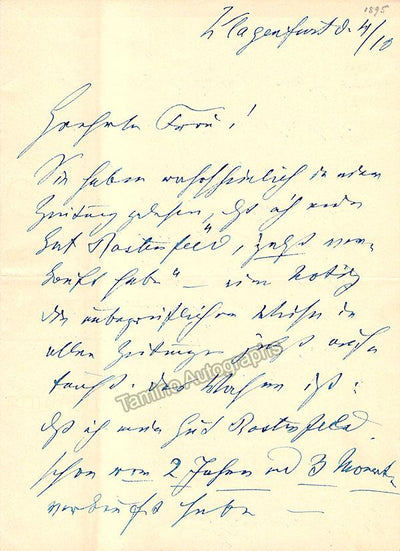 1895
Klagenfurt d. 4/10
Geehrte Frau!
Sie haben wahrscheinlich in einer
Zeitung gelesen, daß ich mein
Gut "Rottenfeld", jetzt ver-
kauft habe" — eine Notiz
die unbegreiflicher Weise in
allen Zeitungen jetzt auf-
taucht. das Wahre ist:
Tamino Autographs
daß ich mein Gut Rottenfeld
schon vor 2 Jahren und 3 Monaten
verkauft habe —